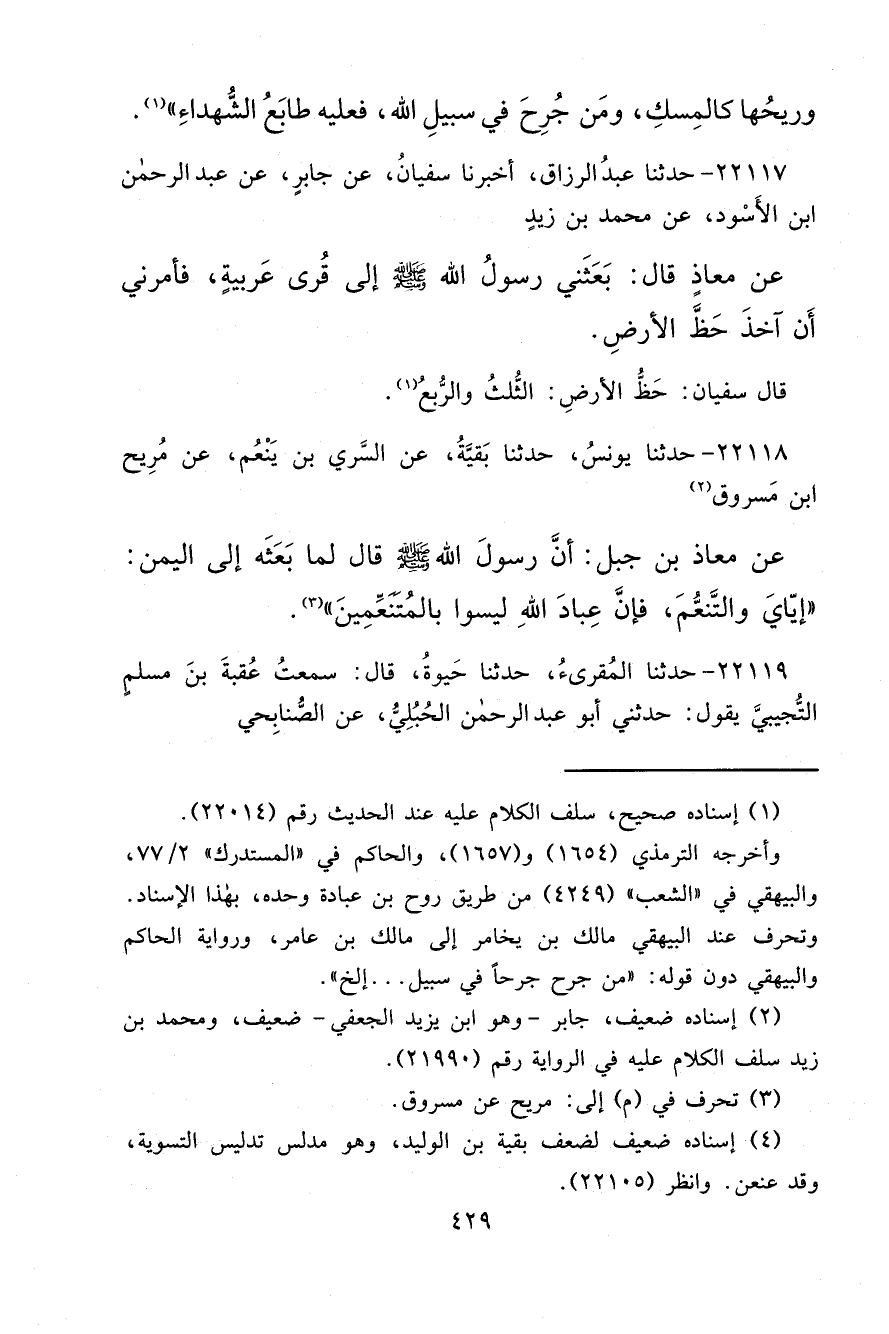 وريحُها كالمِسكِ، ومَن جُرِحَ في سبيلِ الله، فعليه طابَعُ الشُّهداءِ»(١).
٢٢١١٧- حدثنا عبدُ الرزاق، أخبرنا سفيانُ، عن جابرٍ، عن عبد الرحمٰن
ابن الأَسْود، عن محمد بن زيدٍ
عن معاذٍ قال: بَعَثَني رسولُ الله ﷺ إلى قُرى عَربيةٍ، فأمرني
أَن آخذَ حَظَّ الأرضِ.
قال سفيان: حَظُّ الأرضِ: الثُّلثُ والرُّبعُ(١).
٢٢١١٨- حدثنا يونسُ، حدثنا بَقيَّةُ، عن السَّري بن يَنْعُم، عن مُرِيح
ابن مَسروق(٢)
عن معاذ بن جبل: أنَّ رسولَ الله ﷺ قال لما بَعَثَه إلى اليمن:
«إيّايَ والتَّنعُّمَ، فإنَّ عِبادَ اللهِ ليسوا بالمُتَنَعِّمِينَ»(٣).
٢٢١١٩- حدثنا المُقرىءُ، حدثنا حَيوةُ، قال: سمعتُ عُقبةَ بنَ مسلمٍ
التُّجيبيَّ يقول: حدثني أبو عبد الرحمٰن الحُبُلِيُّ، عن الصُّنابِحي
(١) إسناده صحيح، سلف الكلام عليه عند الحديث رقم (٢٢٠١٤).
وأخرجه الترمذي (١٦٥٤) و(١٦٥٧)، والحاكم في «المستدرك» ٧٧/٢،
والبيهقي في «الشعب» (٤٢٤٩) من طريق روح بن عبادة وحده، بهٰذا الإسناد.
وتحرف عند البيهقي مالك بن يخامر إلى مالك بن عامر، ورواية الحاكم
والبيهقي دون قوله: «من جرح جرحاً في سبيل... إلخ».
(٢) إسناده ضعيف، جابر -وهو ابن يزيد الجعفي- ضعيف، ومحمد بن
زيد سلف الكلام عليه في الرواية رقم (٢١٩٩٠).
(٣) تحرف في (م) إلى: مريح عن مسروق.
(٤) إسناده ضعيف لضعف بقية بن الوليد، وهو مدلس تدليس التسوية،
وقد عنعن. وانظر (٢٢١٠٥).
٤٢٩